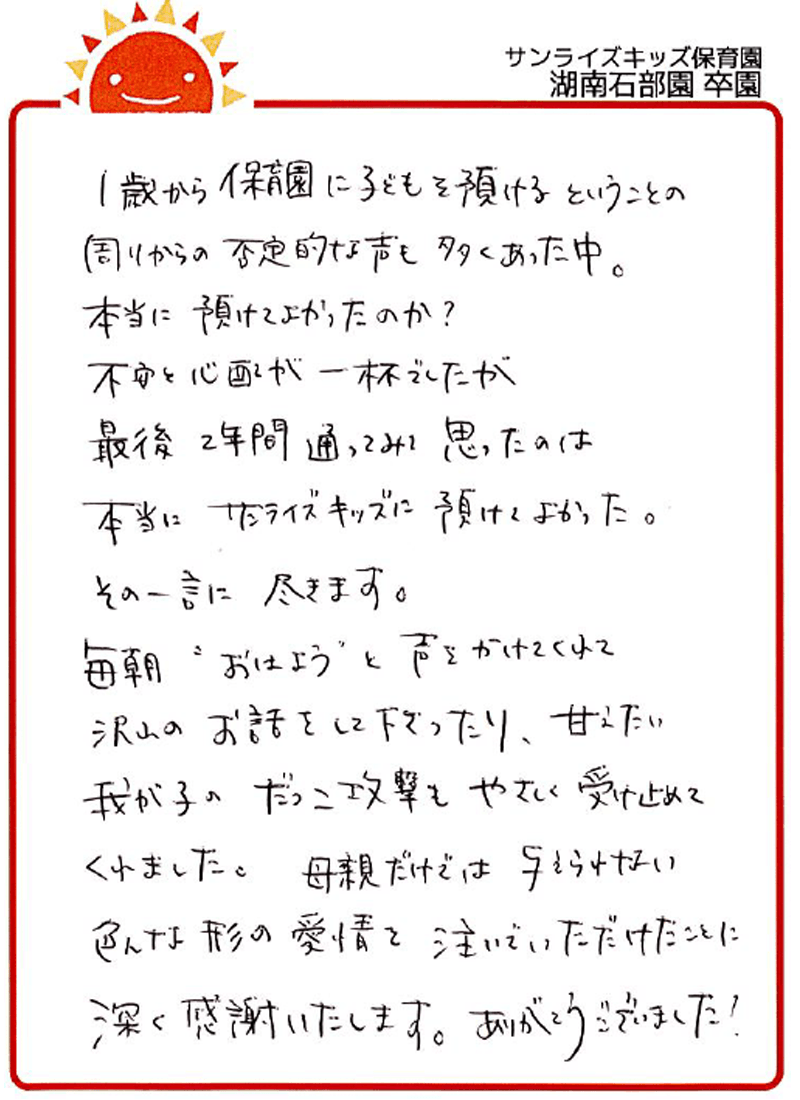 サンライズキッズ保育園
湖南石部園 卒園
1歳から保育園に子どもを預けるということの
周りからの否定的な声も多くあった中。
本当に預けてよかったのか?
不安と心配が一杯でしたが
最後2年間通ってみて思ったのは
本当にサンライズキッズに預けてよかった。
その一言に尽きます。
毎朝“おはよう”と声をかけてくれて
沢山のお話をして下さったり、甘えたい
我が子のだっこ攻撃もやさしく受け止めて
くれました。母親だけでは与えられない
色んな形の愛情を注いでいただけたことに
深く感謝いたします。ありがとうございました!